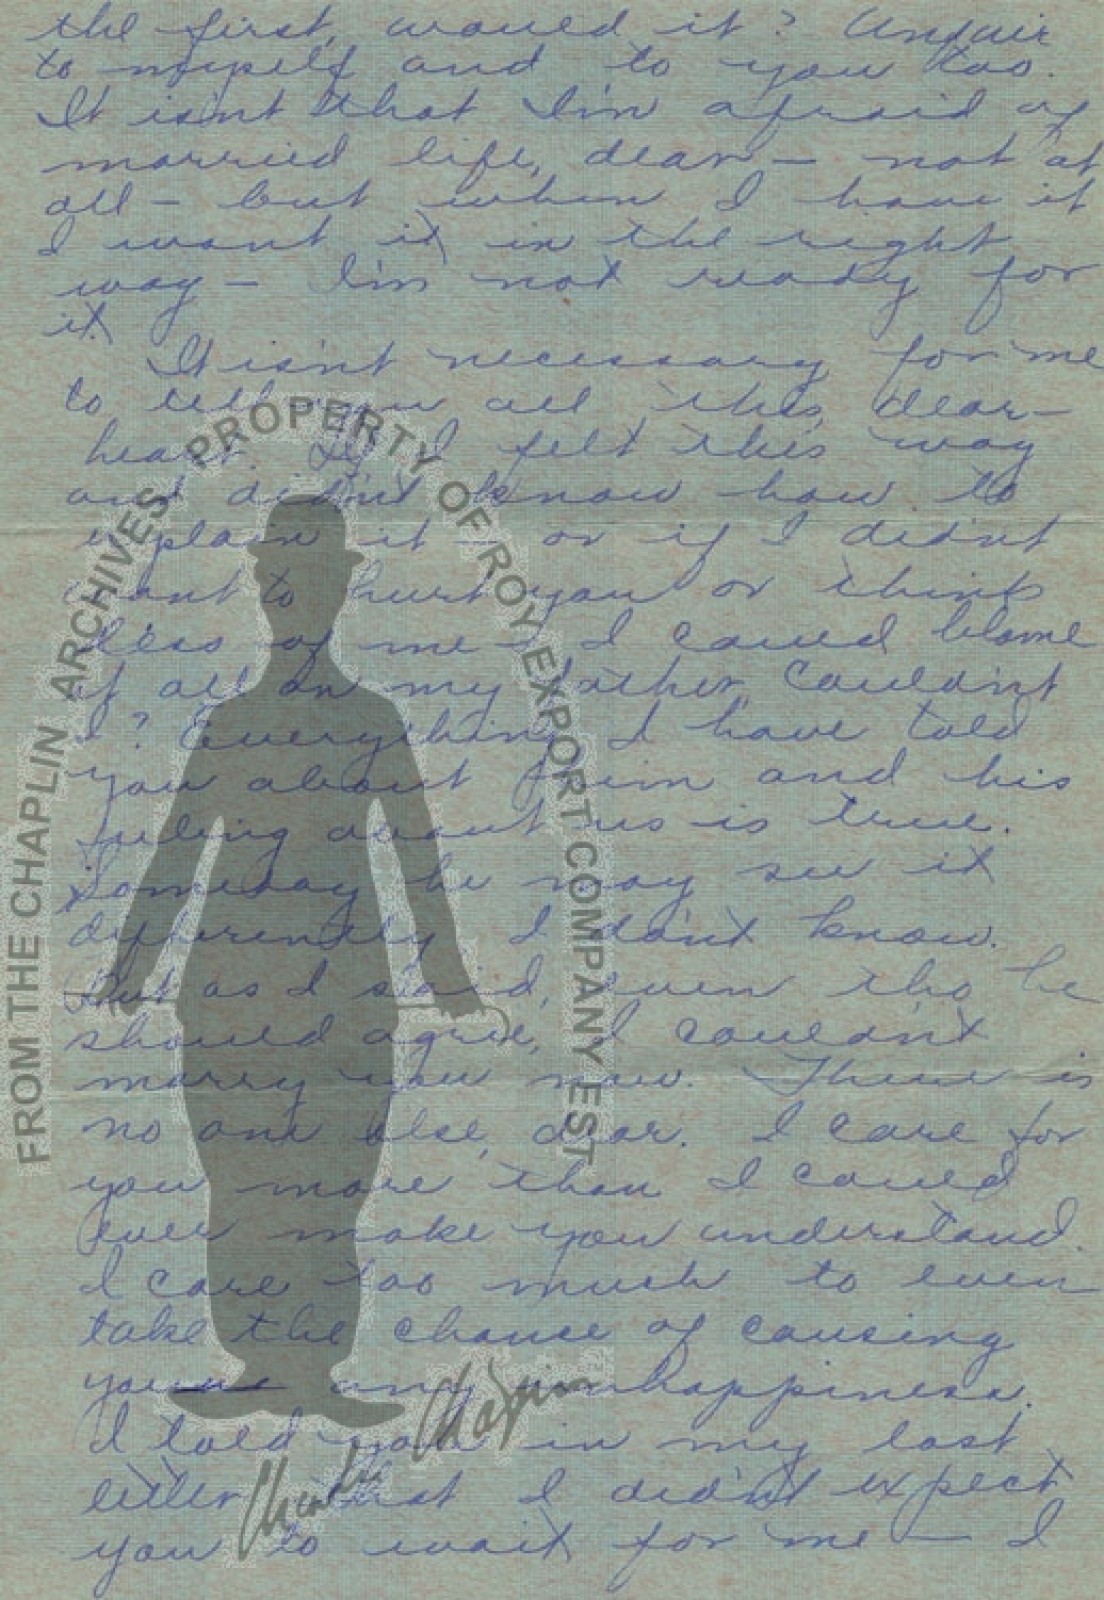 the first, would it? Unfair
to myself and to you too.
It isn't that I'm afraid of
married life, dear — not at
all — but when I have it
I want it in the right
way — I'm not ready for
it.
It isn't necessary for me
to tell you all this, dear-
heart. If I felt this way
and didn't know how to
explain it — or if I didn't
want to hurt you or think
less of me — I could blame
it all on my father, couldn't
I? Everything I have told
you about him and his
feeling about us is true.
Someday he may see it
differently I don't know.
But as I said, even tho he
should agree, I couldn't
marry you now. There is
no one else, dear. I care for
you more than I could
ever make you understand.
I care too much to even
take the chance of causing
you any unhappiness.
I told you in my last
letter that I didn't expect
you to wait for me — I
FROM THE CHAPLIN ARCHIVES PROPERTY OF ROY EXPORT COMPANY EST
Charlie Chaplin